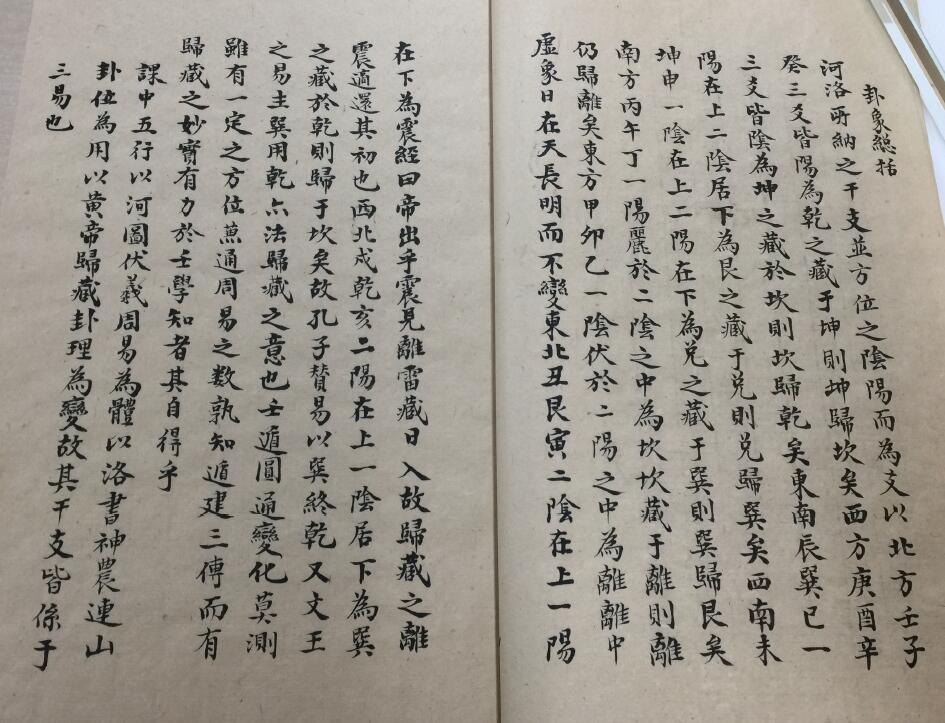 卦象總括
河洛所納之干支並方位之陰陽而為支以北方壬子
癸三爻皆陽為乾之藏于坤則坤歸坎矣西方庚酉辛
三爻皆陰為坤之藏於坎則坎歸乾矣東南辰巽巳一
陽在上二陰居下為艮之藏于兌則兌歸巽矣西南未
坤申一陰在上二陽在下為兌之藏于巽則巽歸艮矣
南方丙午丁一陽麗於二陰之中為坎坎藏于離則離
仍歸離矣東方甲卯乙一陰伏於二陽之中為離離中
虛象日在天長明而不變東北丑艮寅二陰在上一陽
在下為震經曰帝出乎震見離雷藏日入故歸藏之離
震適還其初也西北戌乾亥二陽在上一陰居下為巽
之藏於乾則歸于坎矣故孔子贊易以巽終乾又文王
之易主巽用乾六法歸藏之意也壬遁圓通變化莫測
雖有一定之方位蓋通周易之數孰知遁建三傳而有
歸藏之妙實有力於壬學知者其自得乎
課中五行以河圖伏羲周易為體以洛書神農連山
卦位為用以黃帝歸藏卦理為變故其干支皆係于
三易也